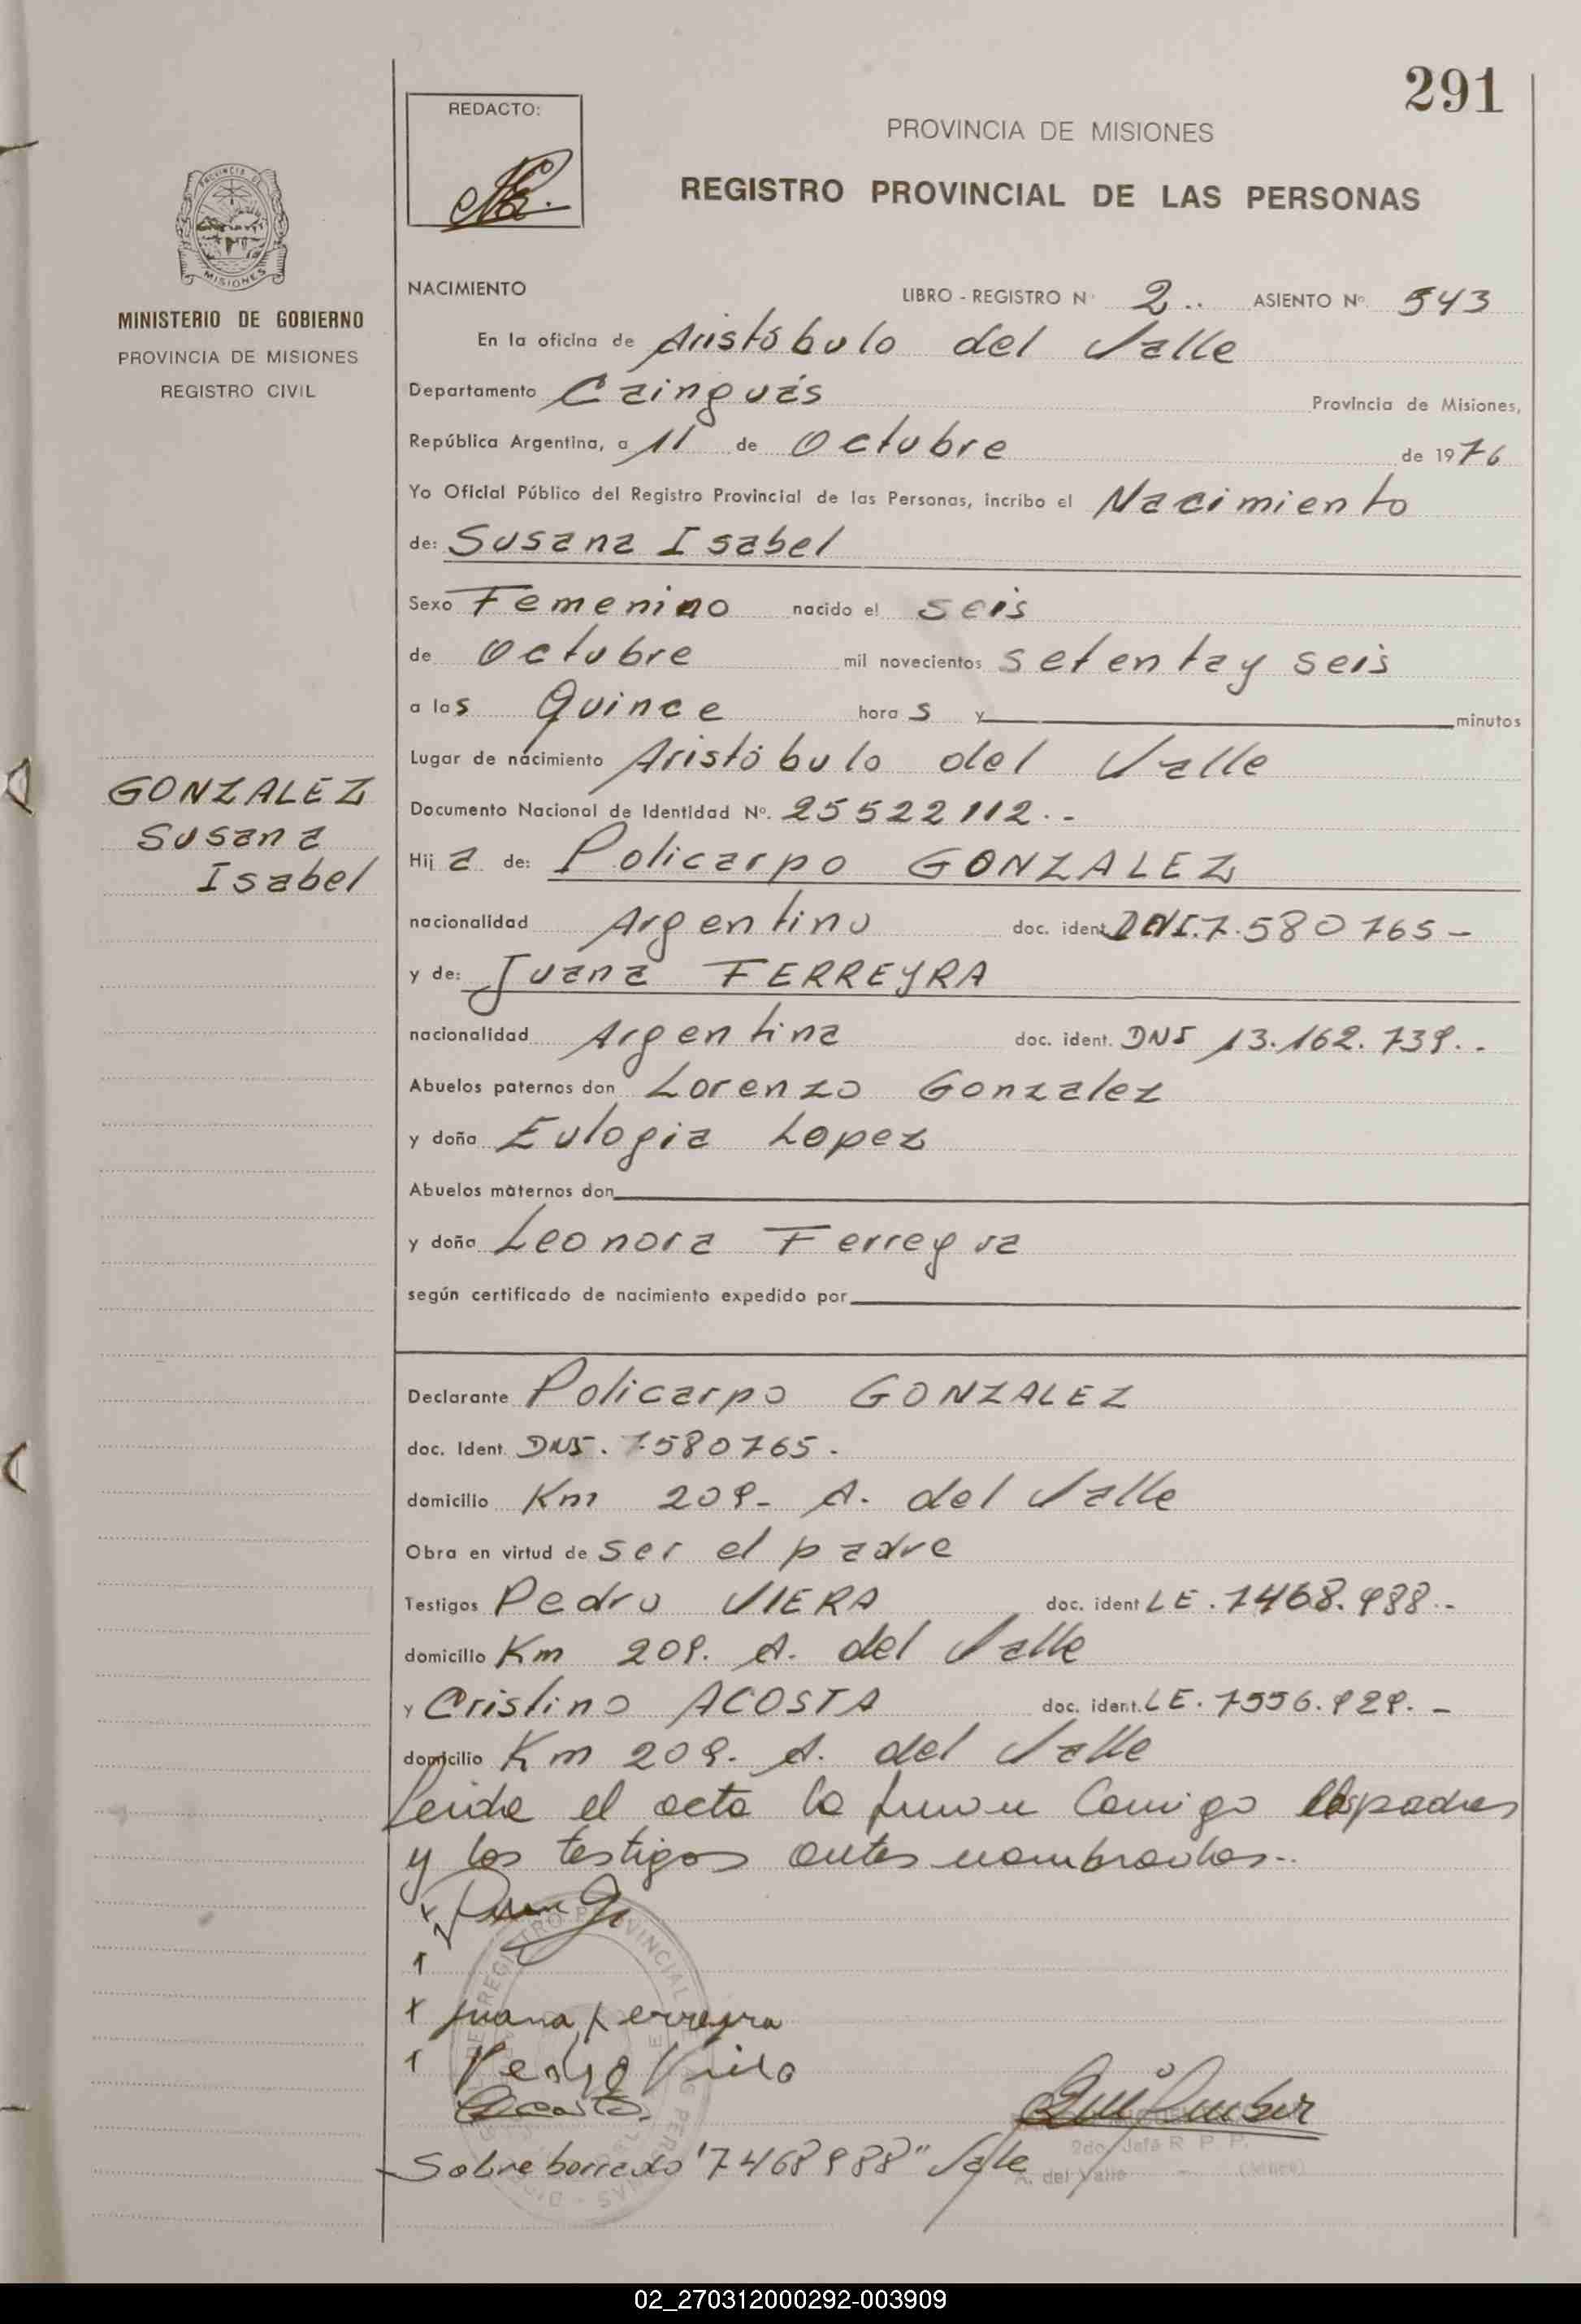 291
REDACTO:
PROVINCIA DE MISIONES
REGISTRO PROVINCIAL DE LAS PERSONAS
PROVINCIA DE
MISIONES
MINISTERIO DE GOBIERNO
PROVINCIA DE MISIONES
REGISTRO CIVIL
NACIMIENTO LIBRO - REGISTRO Nº 2.. ASIENTO Nº 543
En la oficina de Aristóbulo del Valle
Departamento Cainguás Provincia de Misiones,
República Argentina, a 11 de Octubre de 1976
Yo Oficial Público del Registro Provincial de las Personas, incribo el Nacimiento
de: Susana Isabel
Sexo Femenino nacido el seis
de Octubre mil novecientos setenta y seis
a las Quince horas y minutos
Lugar de nacimiento Aristóbulo del Valle
GONZALEZ
Susana
Isabel
Documento Nacional de Identidad Nº. 25522112.-
Hija de: Policarpo GONZALEZ
nacionalidad Argentino doc. ident. DNI.7.580765-
y de: Juana FERREYRA
nacionalidad Argentina doc. ident. DNI 13.162.739..
Abuelos paternos don Lorenzo Gonzalez
y doña Eulogia Lopez
Abuelos maternos don
y doña Leonora Ferreyra
según certificado de nacimiento expedido por
Declarante Policarpo GONZALEZ
doc. Ident. DNI. 7.580765.
domicilio Km 209- A. del Valle
Obra en virtud de ser el padre
Testigos Pedro VIERA doc. ident LE. 7468.988.-
domicilio Km 209. A. del Valle
y Cristino ACOSTA doc. ident. LE. 7556.929.-
domicilio Km 209. A. del Valle
Leida el acta la firman Conmigo los padres
y los testigos antes nombrados..
Juana Ferreyra
Acosta
Sobre borrado "7468988" Vale
2do. Jefe R P P.
A. del Valle
02_270312000292-003909